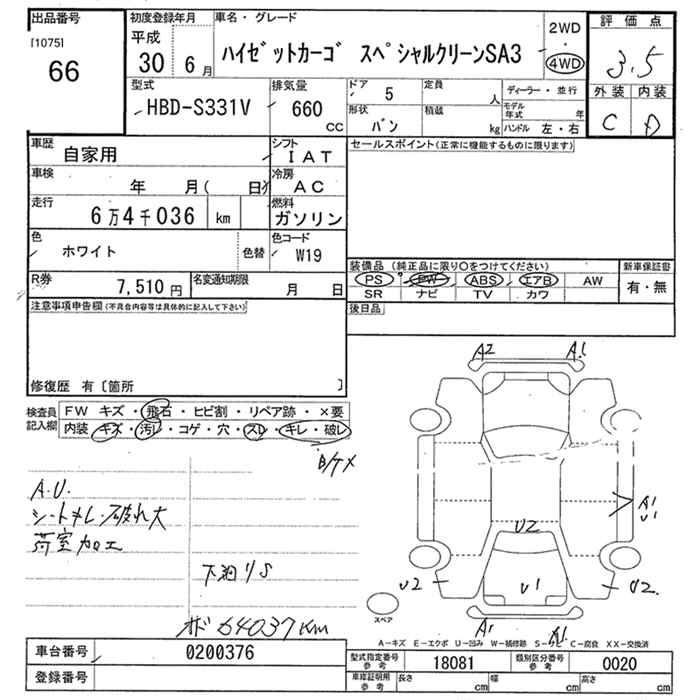 出品番号
[1075]
66
初度登録年月
平成
30 6月
車名・グレード
ハイゼットカーゴ スペシャルクリーンSA3
2WD
・
4WD
評価点
3.5
外装 内装
C D
型式
HBD-S331V
排気量
660
cc
ドア 5
定員 人
形状 バン
積載 kg
ディーラー・並行
モデル年式 年
ハンドル 左・右
車歴 自家用
シフト IAT
セールスポイント(正常に機能するものに限ります)
車検 年 月( 日)
冷房 AC
走行 6万4千036 km
燃料 ガソリン
色 ホワイト 色替
色コード W19
R券 7,510円
名変通知期限 月 日
装備品 (純正品に限り○をつけてください)
PS PW ABS エアB AW
SR ナビ TV カワ
新車保証書
有・無
後日品
注意事項申告欄(不具合内容等は具体的に記入して下さい)
修復歴 有〔箇所 〕
検査員記入欄
FW キズ・飛石・ヒビ割・リペア跡・×要
内装 キズ・汚レ・コゲ・穴・スレ・キレ・破レ
A.U.
シートキレ・破れ大
荷室加工
下廻りS
64037km
A2 A1
A1
U1
U2
U2 U1 U2
A1 A1
スペア
A-キズ E-エクボ U-凹み W-補修跡 S-サビ C-腐食 XX-交換済
車台番号 0200376
登録番号
型式指定番号 参考 18081
類別区分番号 参考 0020
車庫証明用 参考 長さ cm 幅 cm 高さ cm